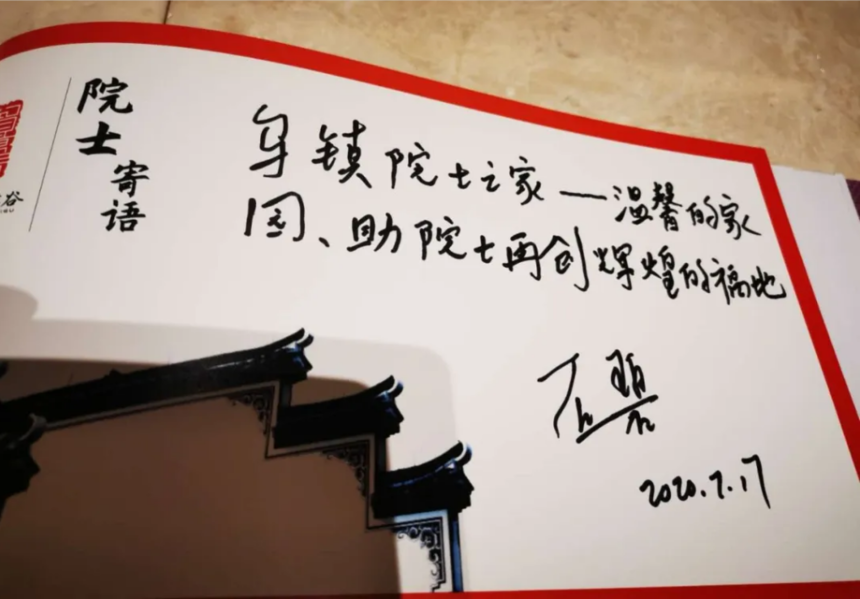 院士寄语
谷
乌镇院士之家一温馨的家
园、助院士再创辉煌的福地
石碧
2020.7.17